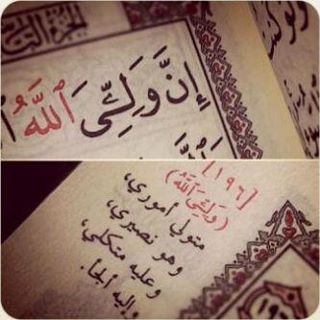 الجزء التا
إِنَّ وَلِـِّۧيَ ٱللَّهُ ٱ
[١٩٦]
(وَلِـِّۧيَ ٱللَّهُ)
متولي أموري،
وهو نصيري،
وعليه متكلي،
وإليه ألجأ.